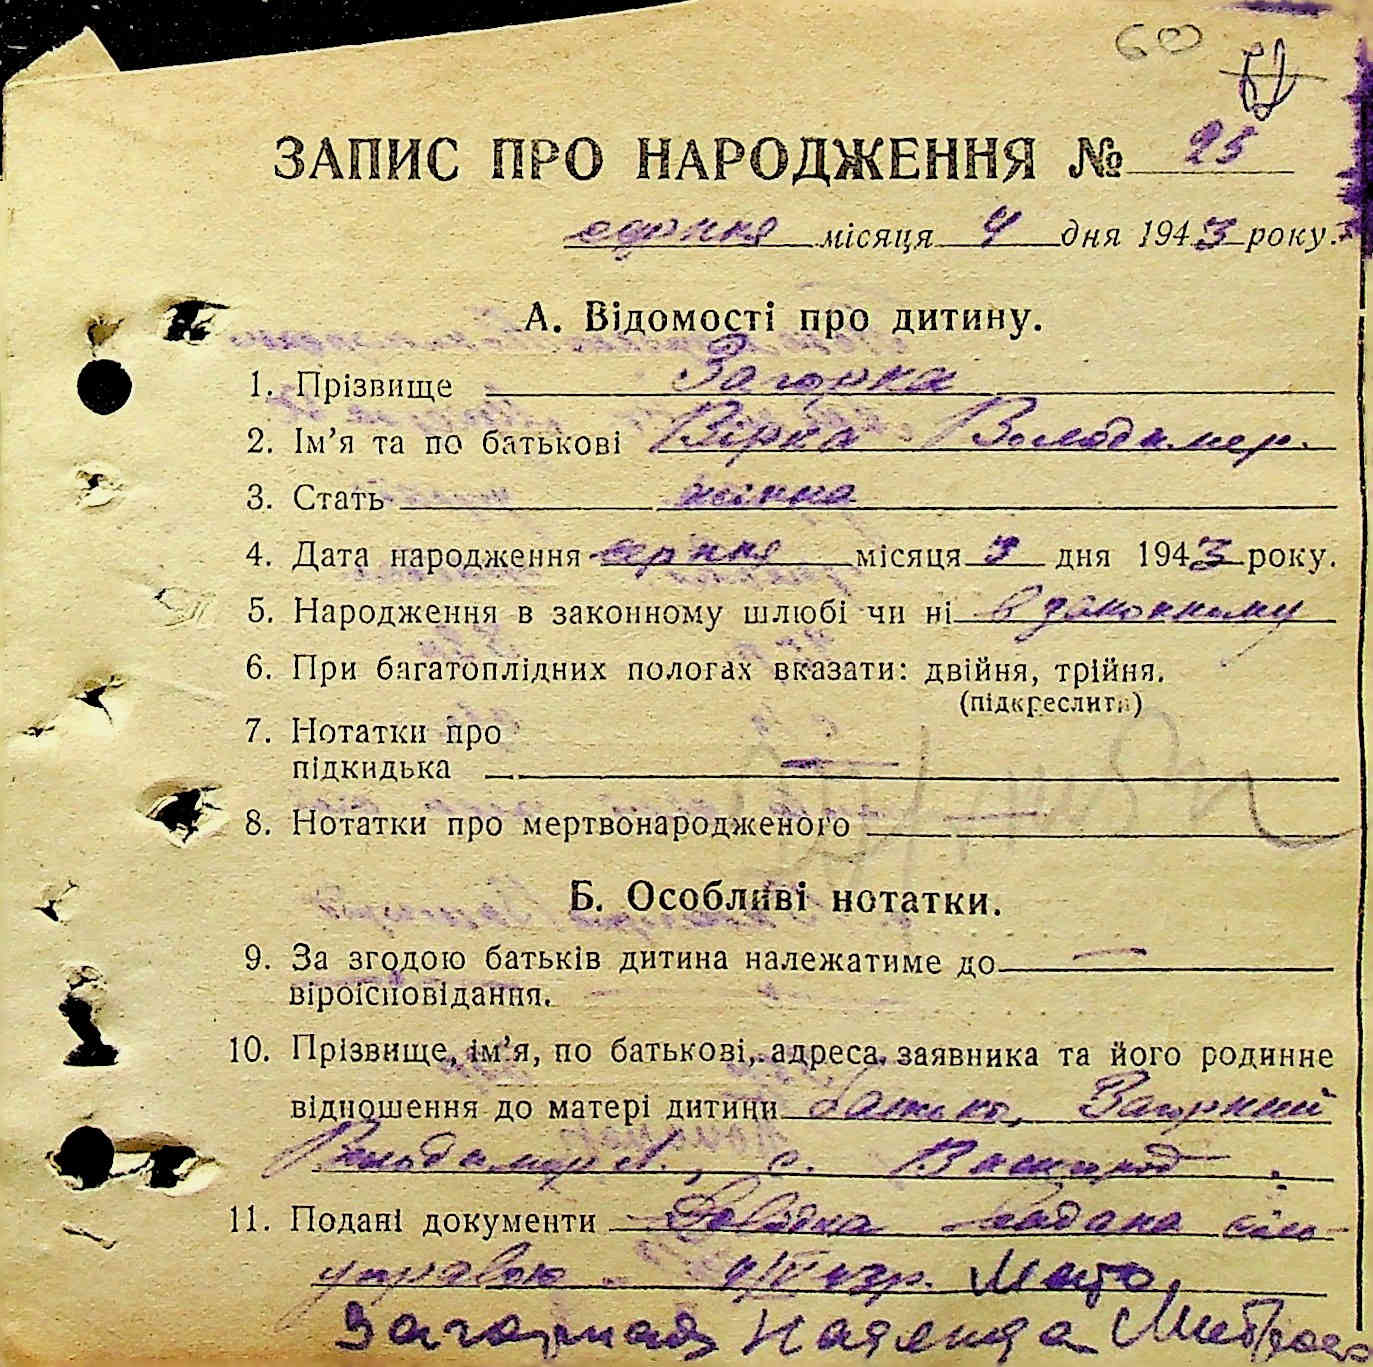 60
ЗАПИС ПРО НАРОДЖЕННЯ № 25
серпня місяця 4 дня 1943 року.
А. Відомості про дитину.
1. Прізвище Загорна
2. Ім'я та по батькові Вірка Володимер.
3. Стать жінка
4. Дата народження серпня місяця 3 дня 1943 року.
5. Народження в законному шлюбі чи ні в законному
6. При багатоплідних пологах вказати: двійня, трійня.
(підкреслити)
7. Нотатки про
підкидька —
8. Нотатки про мертвонародженого —
Б. Особливі нотатки.
9. За згодою батьків дитина належатиме до —
віроісповідання.
10. Прізвище, ім'я, по батькові, адреса заявника та його родинне
відношення до матері дитини батько, Загорний
Володимир с. Вишгород
11. Подані документи Довідка видана сіль-
управою 43р. Мати
Загорная Надежда